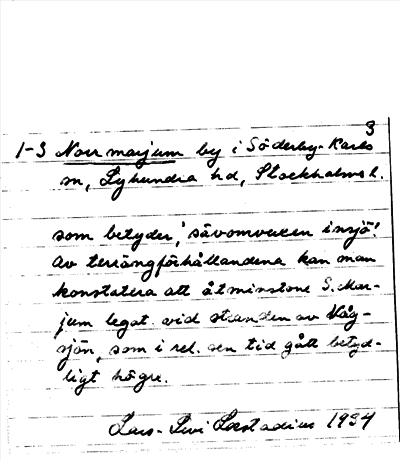 3
1-3 Norrmarjum by i Söderby-Karls
sn, Lyhundra hd, Stockholms l.
som betyder 'sävomvuxen insjö'.
Av terrängförhållandena kan man
konstatera att åtminstone S. Mar-
jum legat vid stranden av Våg-
sjön, som i rel. sen tid gått betyd-
ligt högre.
Lars-Levi Læstadius 1934